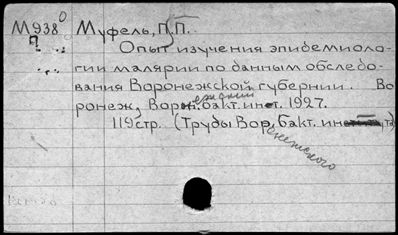 М938⁰ Муфель, П.П.
П
Опыт изучения эпидемиоло-
гии малярии по данным обследо-
вания Воронежской губернии. Во
ронеж, Воронежский бакт. инст. 1927.
119 стр. (Труды Воронежского бакт. инст-та)